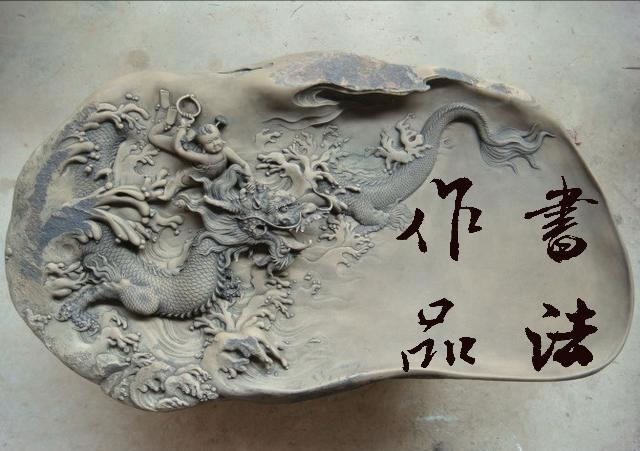 書法
作品